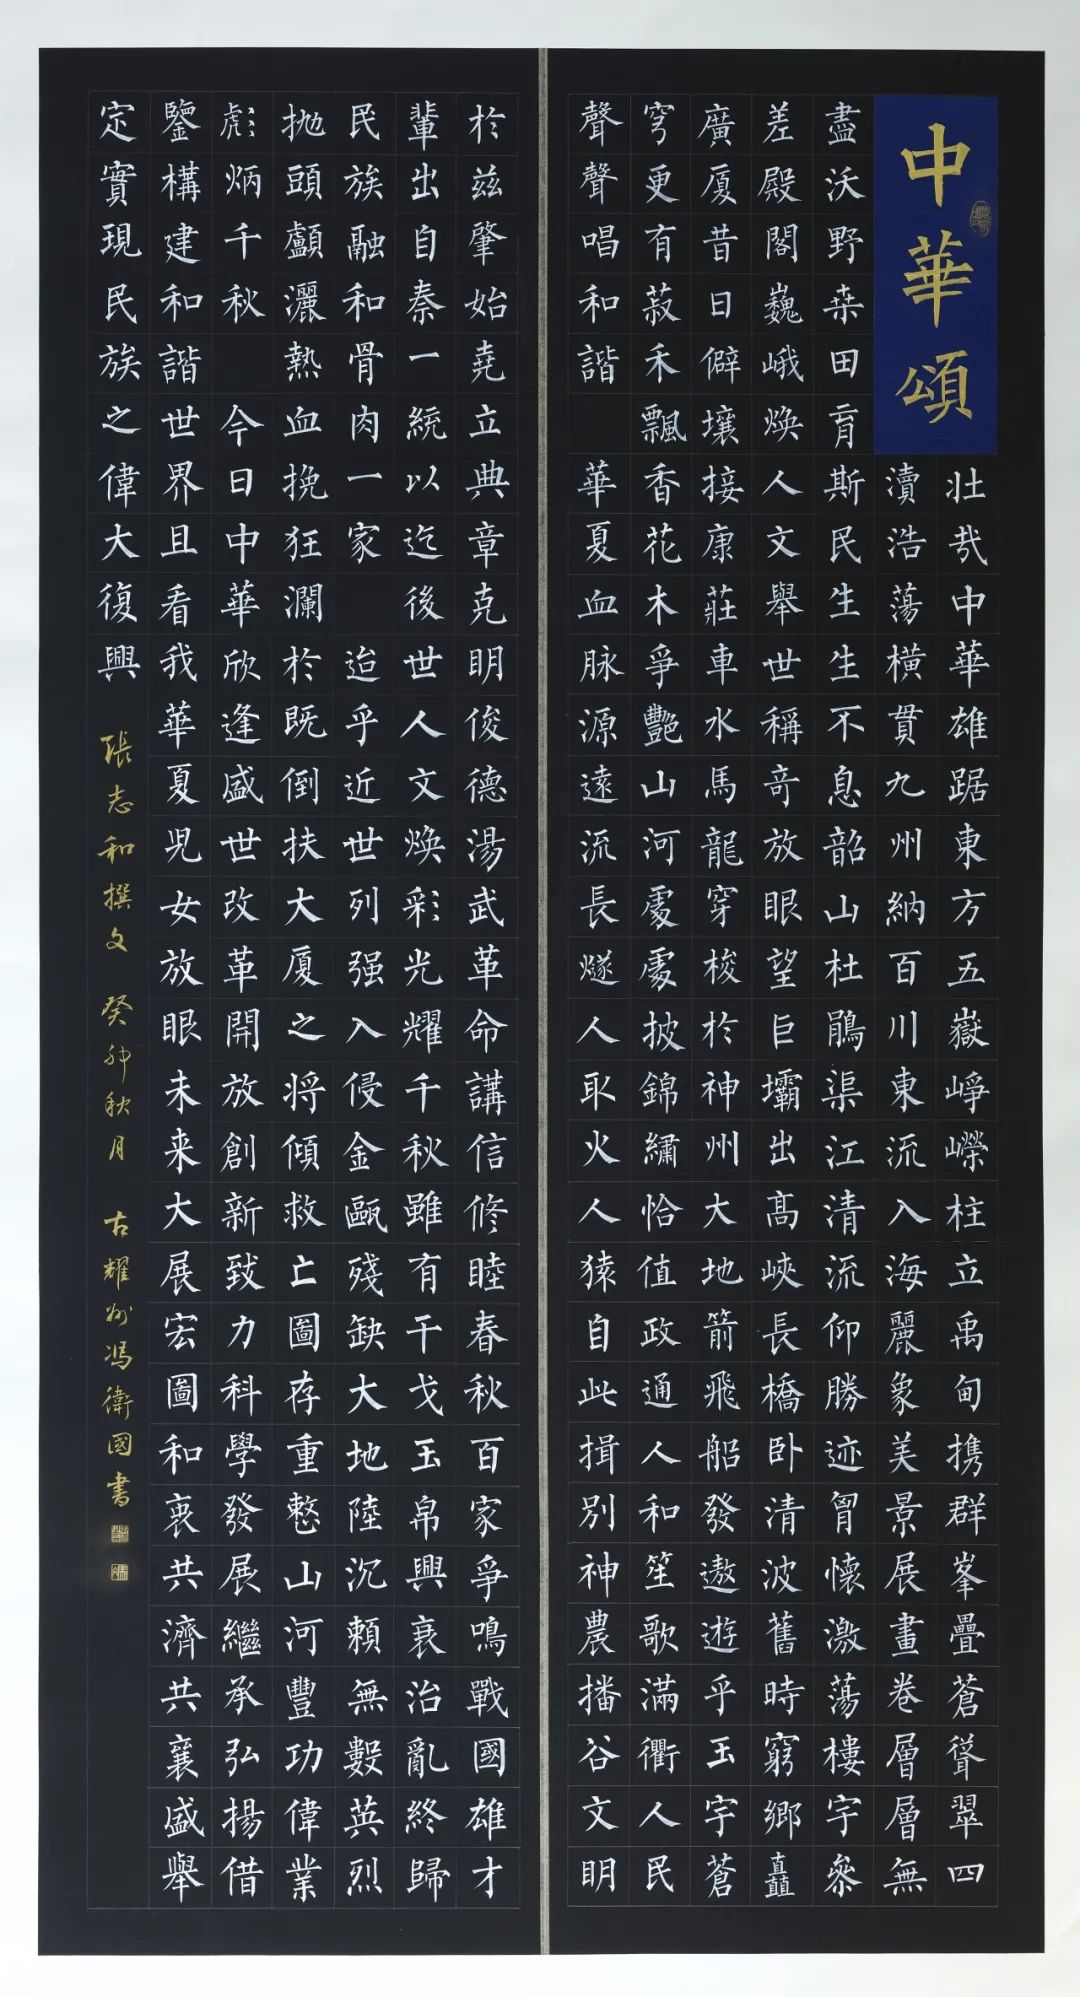 中華頌
壯哉中華雄踞東方五嶽崢嶸柱立禹甸携群峯疊蒼聳翠四
瀆浩蕩橫貫九州納百川東流入海麗象美景展畫卷層層無
盡沃野桒田育斯民生生不息韶山杜鵑渠江清流仰勝迹胷懷激蕩樓宇參
差殿閣巍峨焕人文舉世稱奇放眼望巨壩出髙峽長橋卧清波舊時窮鄉矗
廣厦昔日僻壤接康莊車水馬龍穿梭於神州大地箭飛船發遨遊乎玉宇蒼
穹更有菽禾飄香花木爭艷山河處處披錦繡恰值政通人和笙歌滿衢人民
聲聲唱和諧 華夏血脉源遠流長燧人取火人猿自此揖別神農播谷文明
於兹肇始堯立典章克明俊德湯武革命講信修睦春秋百家爭鳴戰國雄才
輩出自秦一統以迄後世人文焕彩光耀千秋雖有干戈玉帛興衰治亂終歸
民族融和骨肉一家 迨乎近世列强入侵金甌殘缺大地陸沉賴無數英烈
抛頭顱灑熱血挽狂瀾於既倒扶大厦之將傾救亡圖存重整山河豐功偉業
彪炳千秋 今日中華欣逢盛世改革開放創新致力科學發展繼承弘揚借
鑒構建和諧世界且看我華夏児女放眼未来大展宏圖和衷共濟共襄盛舉
定實現民族之偉大復興
張志和撰文 癸卯秋月 古耀州馮衛國書